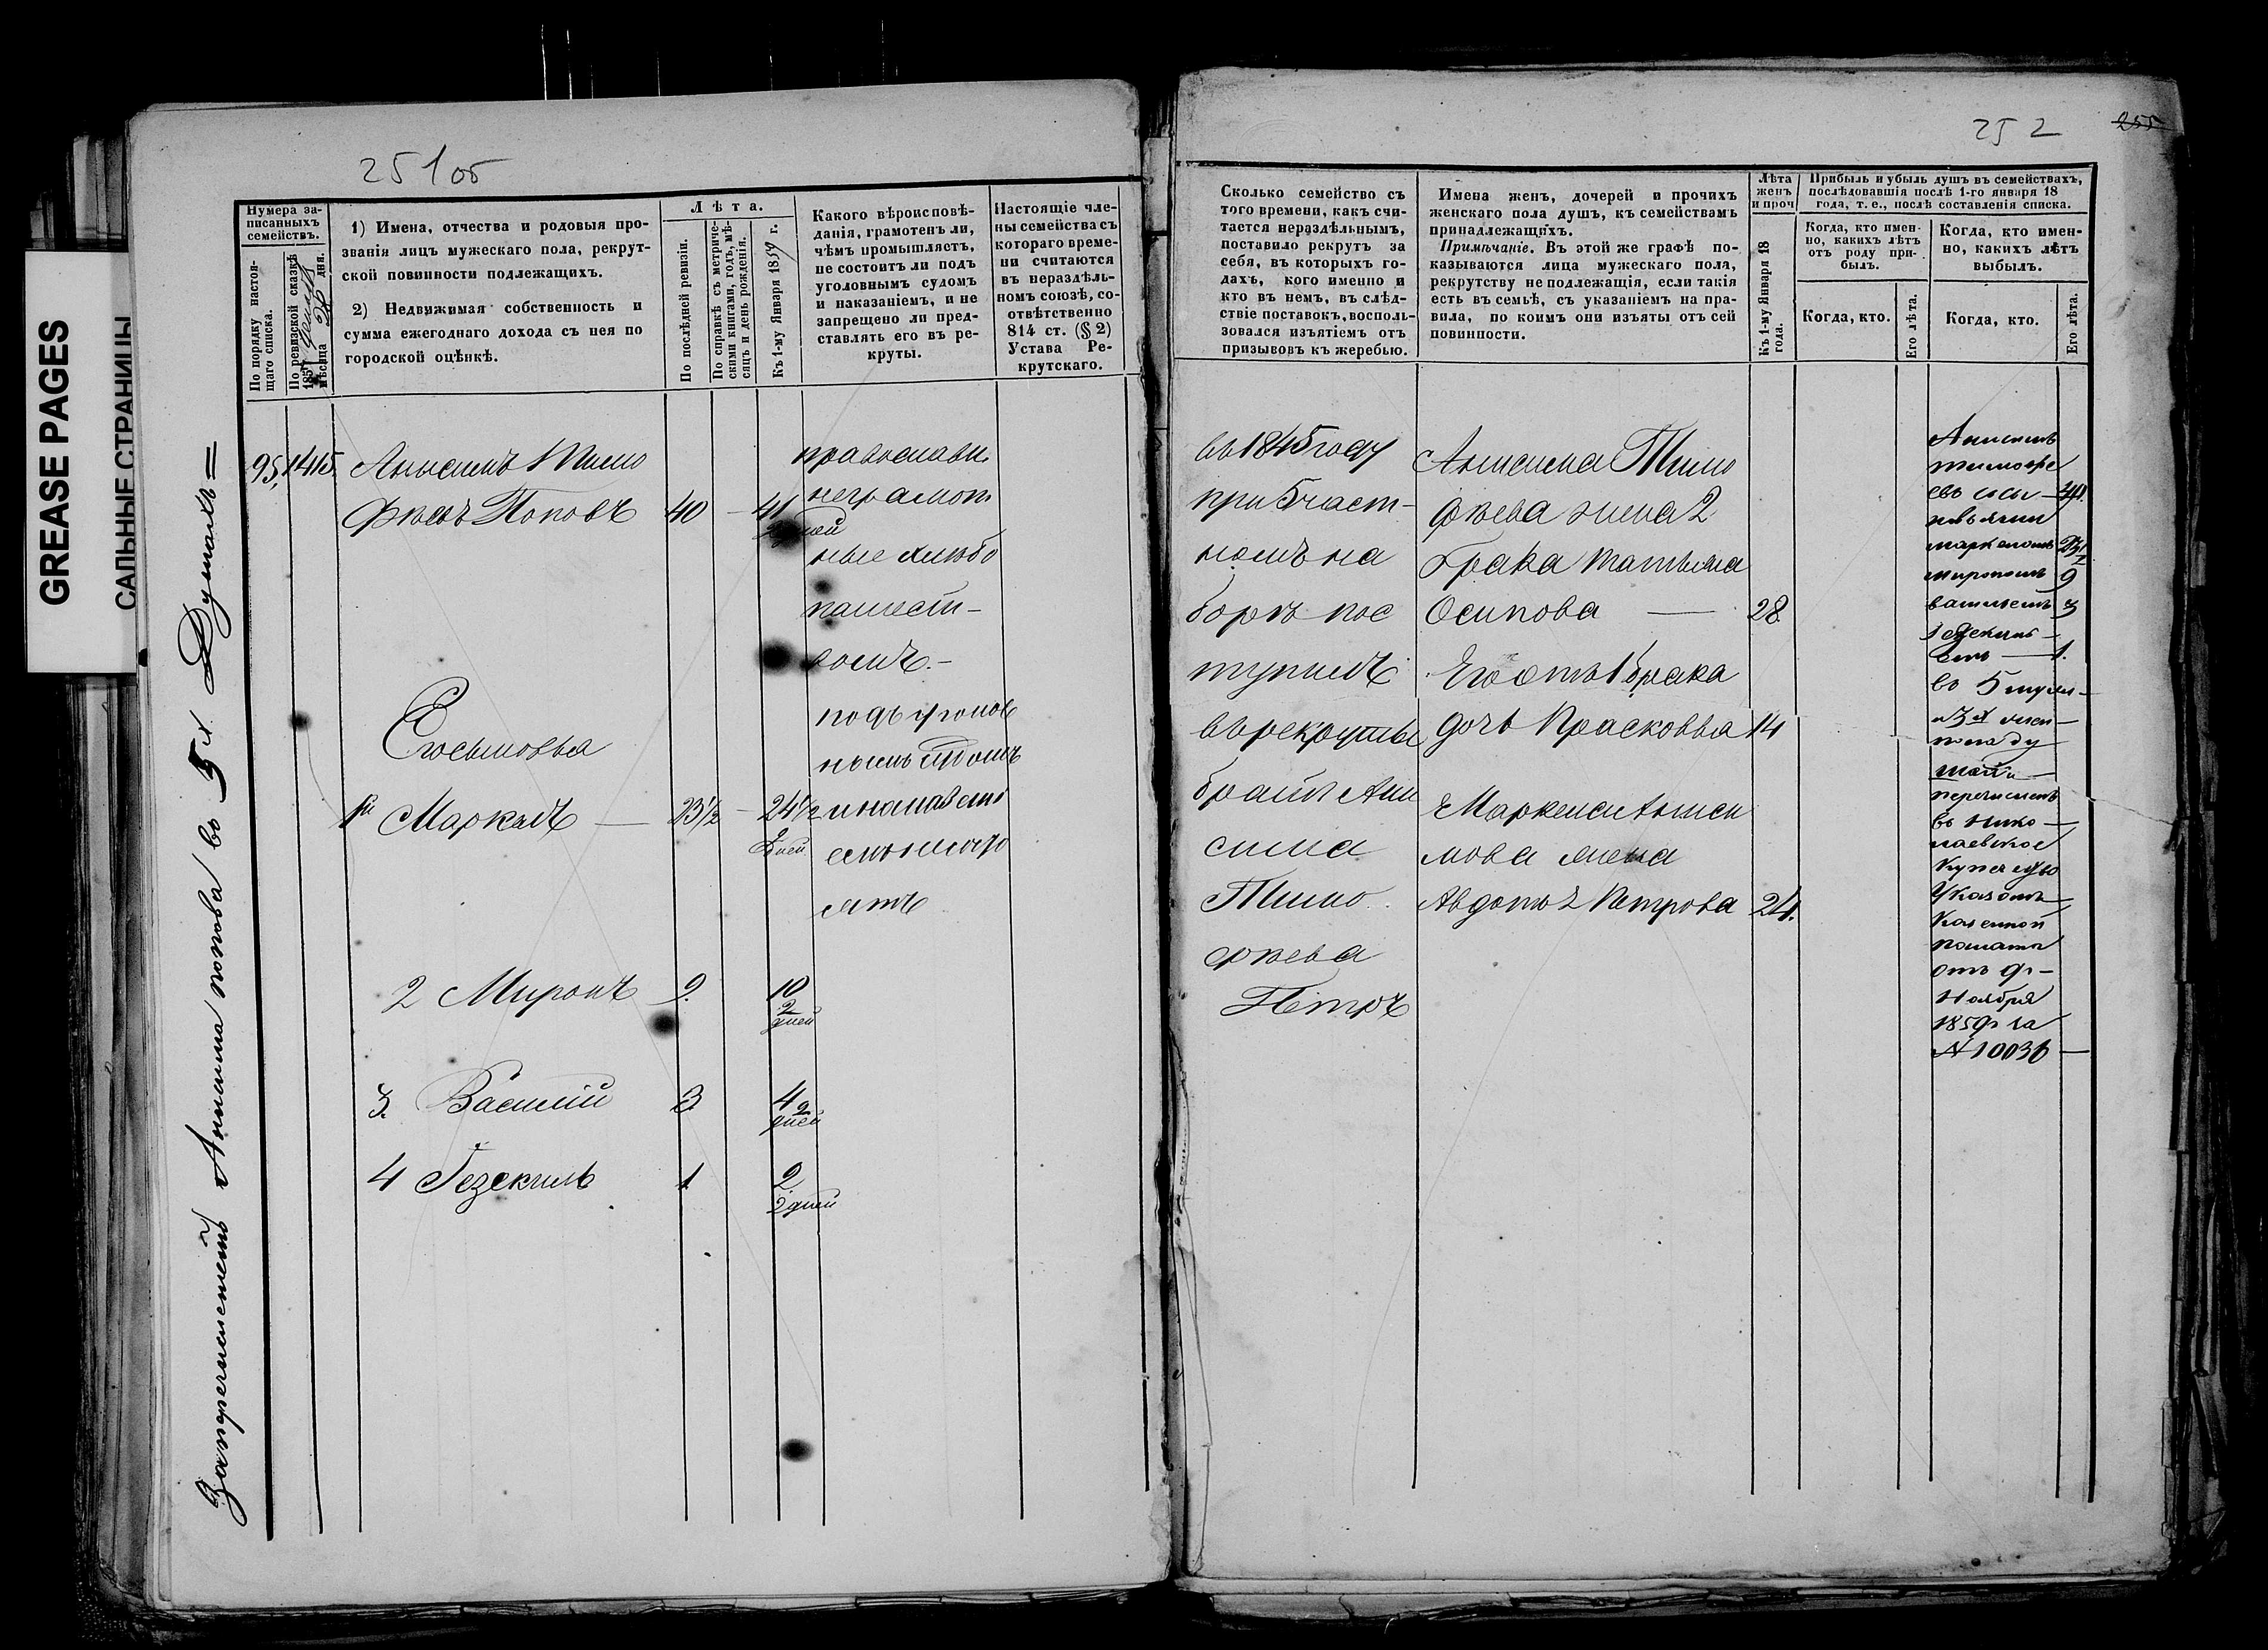 GREASE PAGES
САЛЬНЫЕ СТРАНИЦЫ
251 об
Нумера за-
писанныхъ
семействъ.
По порядку настоя-
щаго списка.
По ревизской сказкѣ
185
мѣсяца дня.
1) Имена, отчества и родовыя про-
званія лицъ мужескаго пола, рекрут-
ской повинности подлежащихъ.
2) Недвижимая собственность и
сумма ежегоднаго дохода съ нея по
городской оцѣнкѣ.
Лѣта.
По послѣдней ревизіи.
По справкѣ съ метриче-
скими книгами, годъ, мѣ-
сяцъ и день рожденія.
Къ 1-му Января 1859 г.
Какого вѣроисповѣ-
данія, грамотенъ ли,
чѣмъ промышляетъ,
не состоитъ ли подъ
уголовнымъ судомъ
и наказаніемъ, и не
запрещено ли пред-
ставлять его въ ре-
круты.
Настоящіе чле-
ны семейства съ
котораго време-
ни считаются
въ нераздѣль-
номъ союзѣ, со-
отвѣтственно
814 ст. (§ 2)
Устава Ре-
крутскаго.
95. 1415. Анисимъ Тимо
фѣевъ Поповъ 40 — 41
2 дней
православн.
неграмот
ные хлѣбо
пашест-
вомъ.—
подъ уголов
нымъ судомъ
и наказані
емъ несосто
ятъ
Его сыновья
1й Маркелъ — 23½ — 24½
2 дней
2 Миронъ 9. 10
2
дней
3. Василій 3 4
2
дней
4 Іезекіиль 1 2
2 дней
Запричисленіемъ Анисима попова въ 5 д. =
252
255
Сколько семейство съ
того времени, какъ счи-
тается нераздѣльнымъ,
поставило рекрутъ за
себя, въ которыхъ го-
дахъ, кого именно и
кто въ немъ, въ слѣд-
ствіе поставокъ, восполь-
зовался изъятіемъ отъ
призывовъ къ жеребью.
Имена женъ, дочерей и прочихъ
женскаго пола душъ, къ семействамъ
принадлежащихъ.
Примѣчаніе. Въ этой же графѣ по-
казываются лица мужескаго пола,
рекрутству не подлежащія, если такія
есть въ семьѣ, съ указаніемъ на пра-
вила, по коимъ они изъяты отъ сей
повинности.
Лѣта
женъ
и проч
Къ 1-му Января 18
года.
Прибыль и убыль душъ въ семействахъ,
послѣдовавшія послѣ 1-го января 18
года, т. е., послѣ составленія списка.
Когда, кто имен-
но, какихъ лѣтъ
отъ роду при-
былъ.
Когда, кто.
Его лѣта.
Когда, кто имен-
но, какихъ лѣтъ
выбылъ.
Когда, кто.
Его лѣта.
въ 1845 году
при 5 част-
номъ на
борѣ пос
тупилъ
въ рекруты
братъ Ани
сима
Тимо
фѣева
Петръ
Анисима Тимо
фѣева жена 2
брака Татьяна
Осипова — 28.
Его отъ 1 брака
дочь Прасковья 14
Маркела Аниси
мова жена
Авдотья Петрова 24.
Анисимъ
тимофе
евъ съ сы —
новьями
маркеломъ
мирономъ 9
васильемъ 3
Іезекіи
лемъ — 1.
въ 5 мужс —
перечисленъ
въ Нико —
лаевское
купечество
Указомъ
Казенной
палаты
отъ 9 —
Ноября
1859 за
№ 10036 —